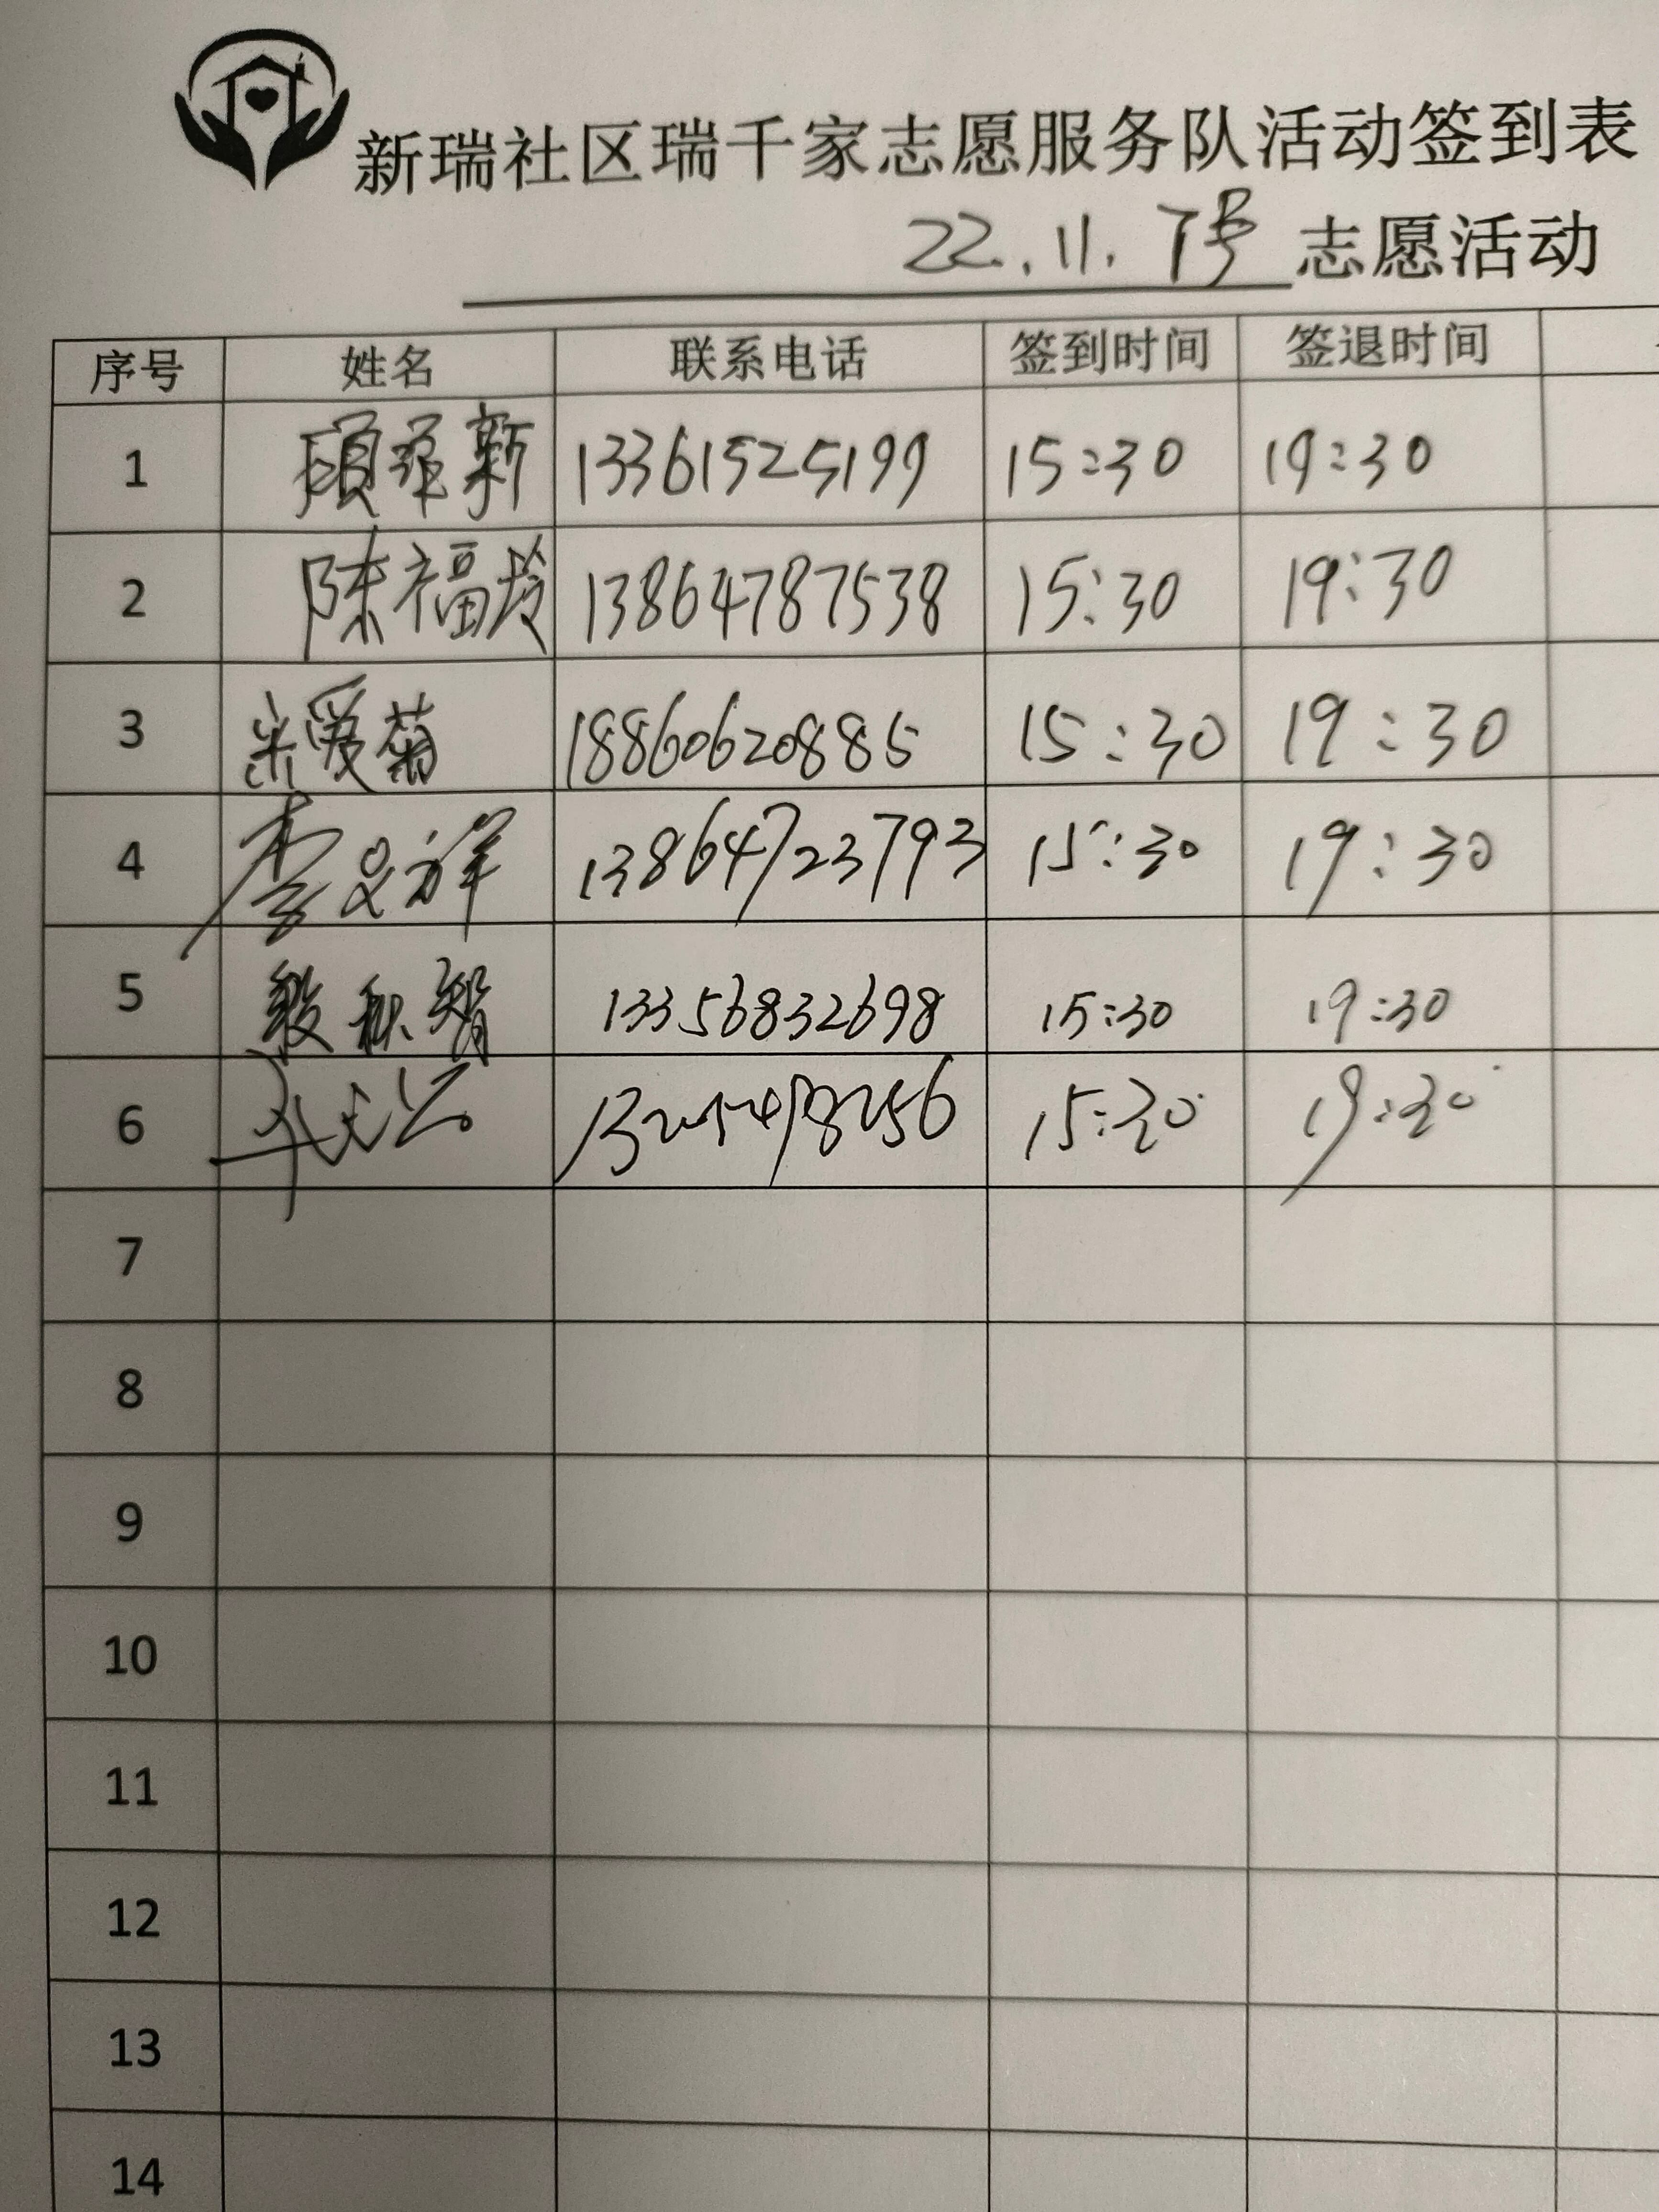 新瑞社区瑞千家志愿服务队活动签到表
22.11.7号 志愿活动
序号 姓名 联系电话 签到时间 签退时间
1 新 13361525199 15:30 19:30
2 陈福玲 13864787538 15:30 19:30
3 爱菊 18860620885 15:30 19:30
4 李 祥 13864723793 15:30 19:30
5 段 智 13356832698 15:30 19:30
6 15:30 19:30
7
8
9
10
11
12
13
14